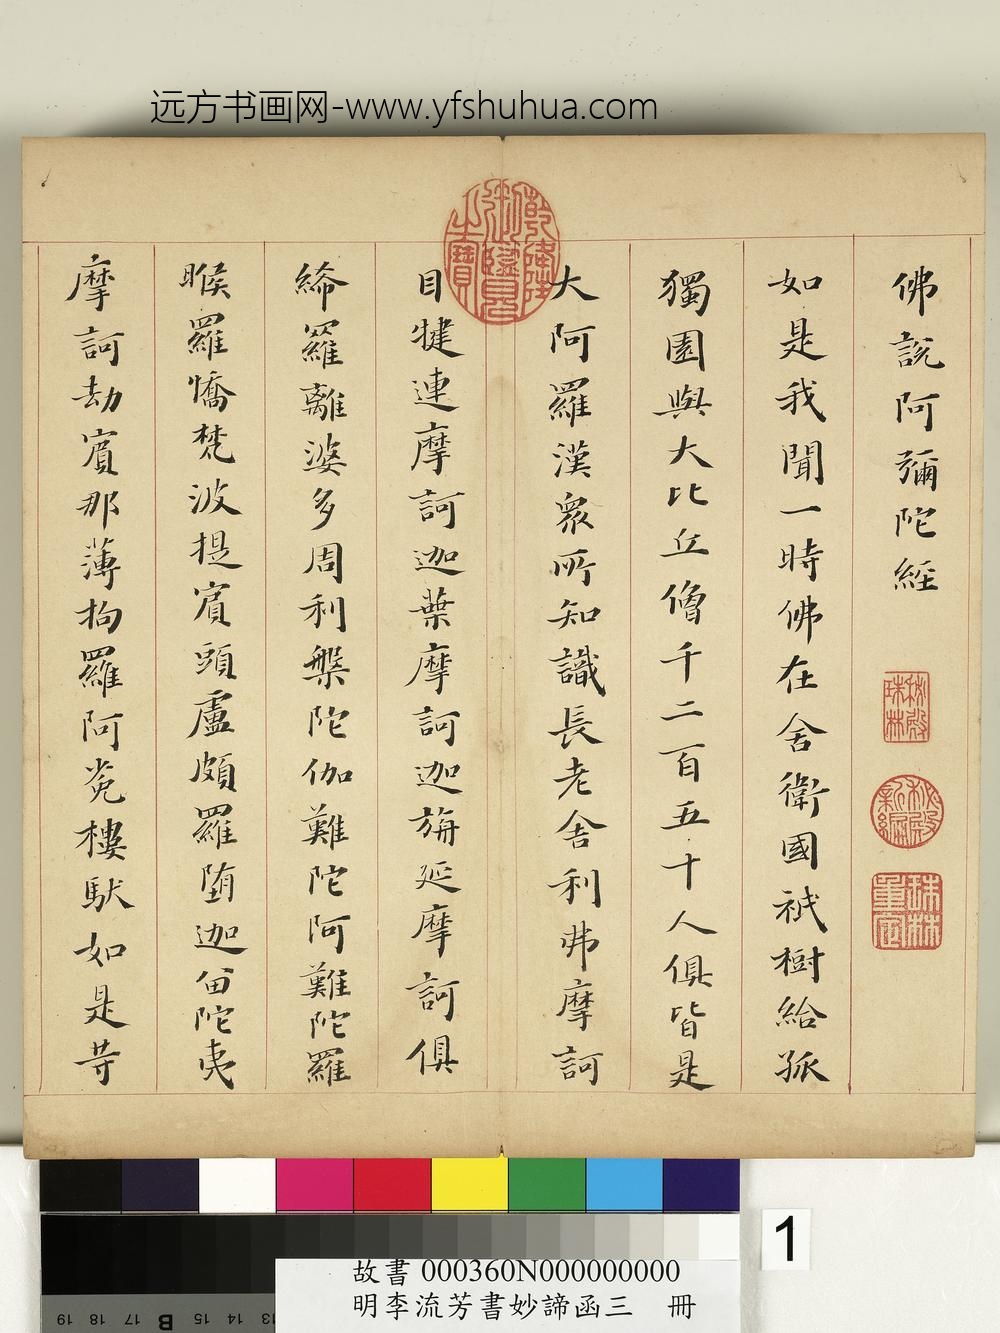 远方书画网-www.yfshuhua.com
佛說阿彌陀經
如是我聞一時佛在舍衛國祇樹給孤
獨園與大比丘僧千二百五十人俱皆是
大阿羅漢眾所知識長老舍利弗摩訶
目犍連摩訶迦葉摩訶迦旃延摩訶俱
絺羅離婆多周利槃陀伽難陀阿難陀羅
睺羅憍梵波提賓頭盧頗羅墮迦留陀夷
摩訶劫賓那薄拘羅阿㝹樓馱如是等
乾隆御覽之寶
秘殿珠林
秘殿新編
珠林重定
1
故書 000360N000000000
明李流芳書妙諦函三 冊
19 18 17 B 16 15 14 13